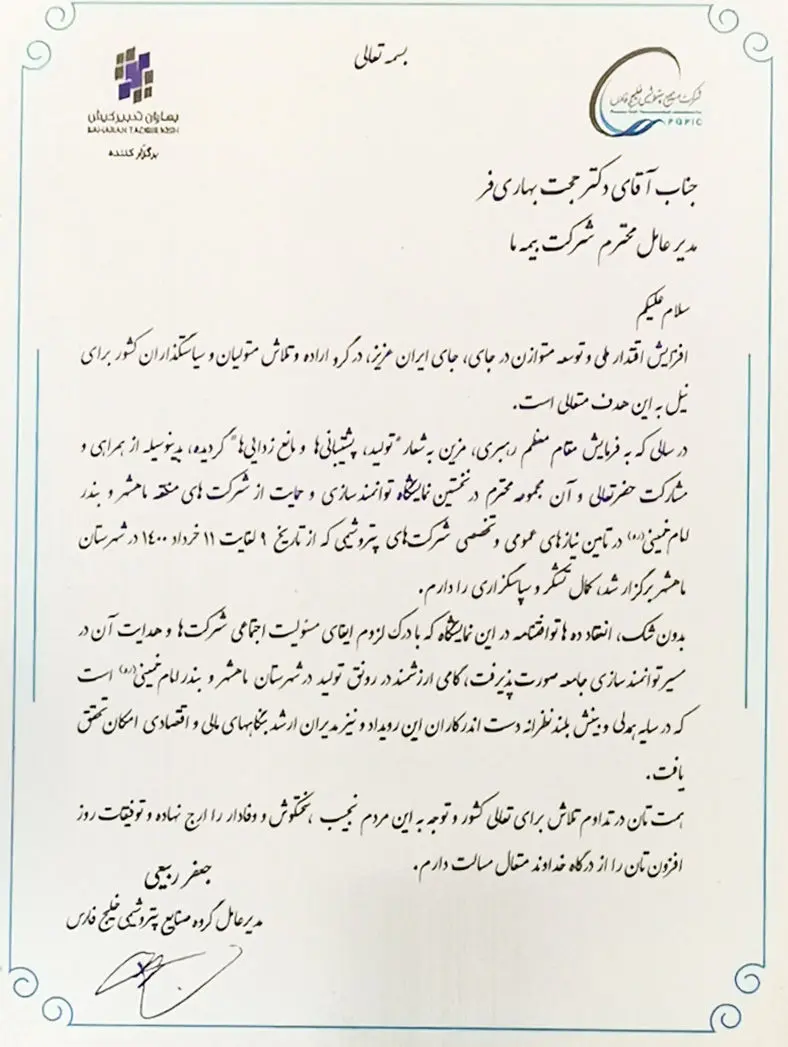 بسمه تعالی
شرکت صنایع پتروشیمی خلیج فارس
PGPIC
بهاران تدبیر کیش
BAHARAN TADBIR KISH
برگزار کننده
جناب آقای دکتر حجت بهاری فر
مدیر عامل محترم شرکت بیمه ما
سلام علیکم
افزایش اقتدار ملی و توسعه متوازن در جای، جای ایران عزیز، در گرو اراده و تلاش متولیان و سیاستگذاران کشور برای
نیل به این هدف متعالی است.
در سالی که به فرمایش مقام معظم رهبری، مزین به شعار "تولید، پشتیبانی‌ها و مانع زدایی‌ها" گردیده، بدینوسیله از همراهی و
مشارکت حضرتعالی و آن مجموعه محترم در نخستین نمایشگاه توانمند سازی و حمایت از شرکت های منطقه ماهشهر و بندر
امام خمینی(ره) در تامین نیاز های عمومی و تخصصی شرکت‌های پتروشیمی که از تاریخ ۹ لغایت ۱۱ خرداد ۱۴۰۰ در شهرستان
ماهشهر برگزار شد، کمال تشکر و سپاسگزاری را دارم.
بدون شک، انعقاد ده ها توافقنامه در این نمایشگاه که با درک لزوم ایفای مسئولیت اجتماعی شرکت‌ها و هدایت آن در
مسیر توانمند سازی جامعه صورت پذیرفت، گامی ارزشمند در رونق تولید در شهرستان ماهشهر و بندر امام خمینی(ره) است
که در سایه همدلی و بینش بلند نظرانه دست اندرکاران این رویداد و نیز مدیران ارشد بنگاههای مالی و اقتصادی امکان تحقق
یافت.
همت تان در تداوم تلاش برای تعالی کشور و توجه به این مردم نجیب، سختکوش و وفادار را ارج نهاده و توفیقات روز
افزون تان را از درگاه خداوند متعال مسالت دارم.
جعفر ربیعی
مدیرعامل گروه صنایع پتروشیمی خلیج فارس